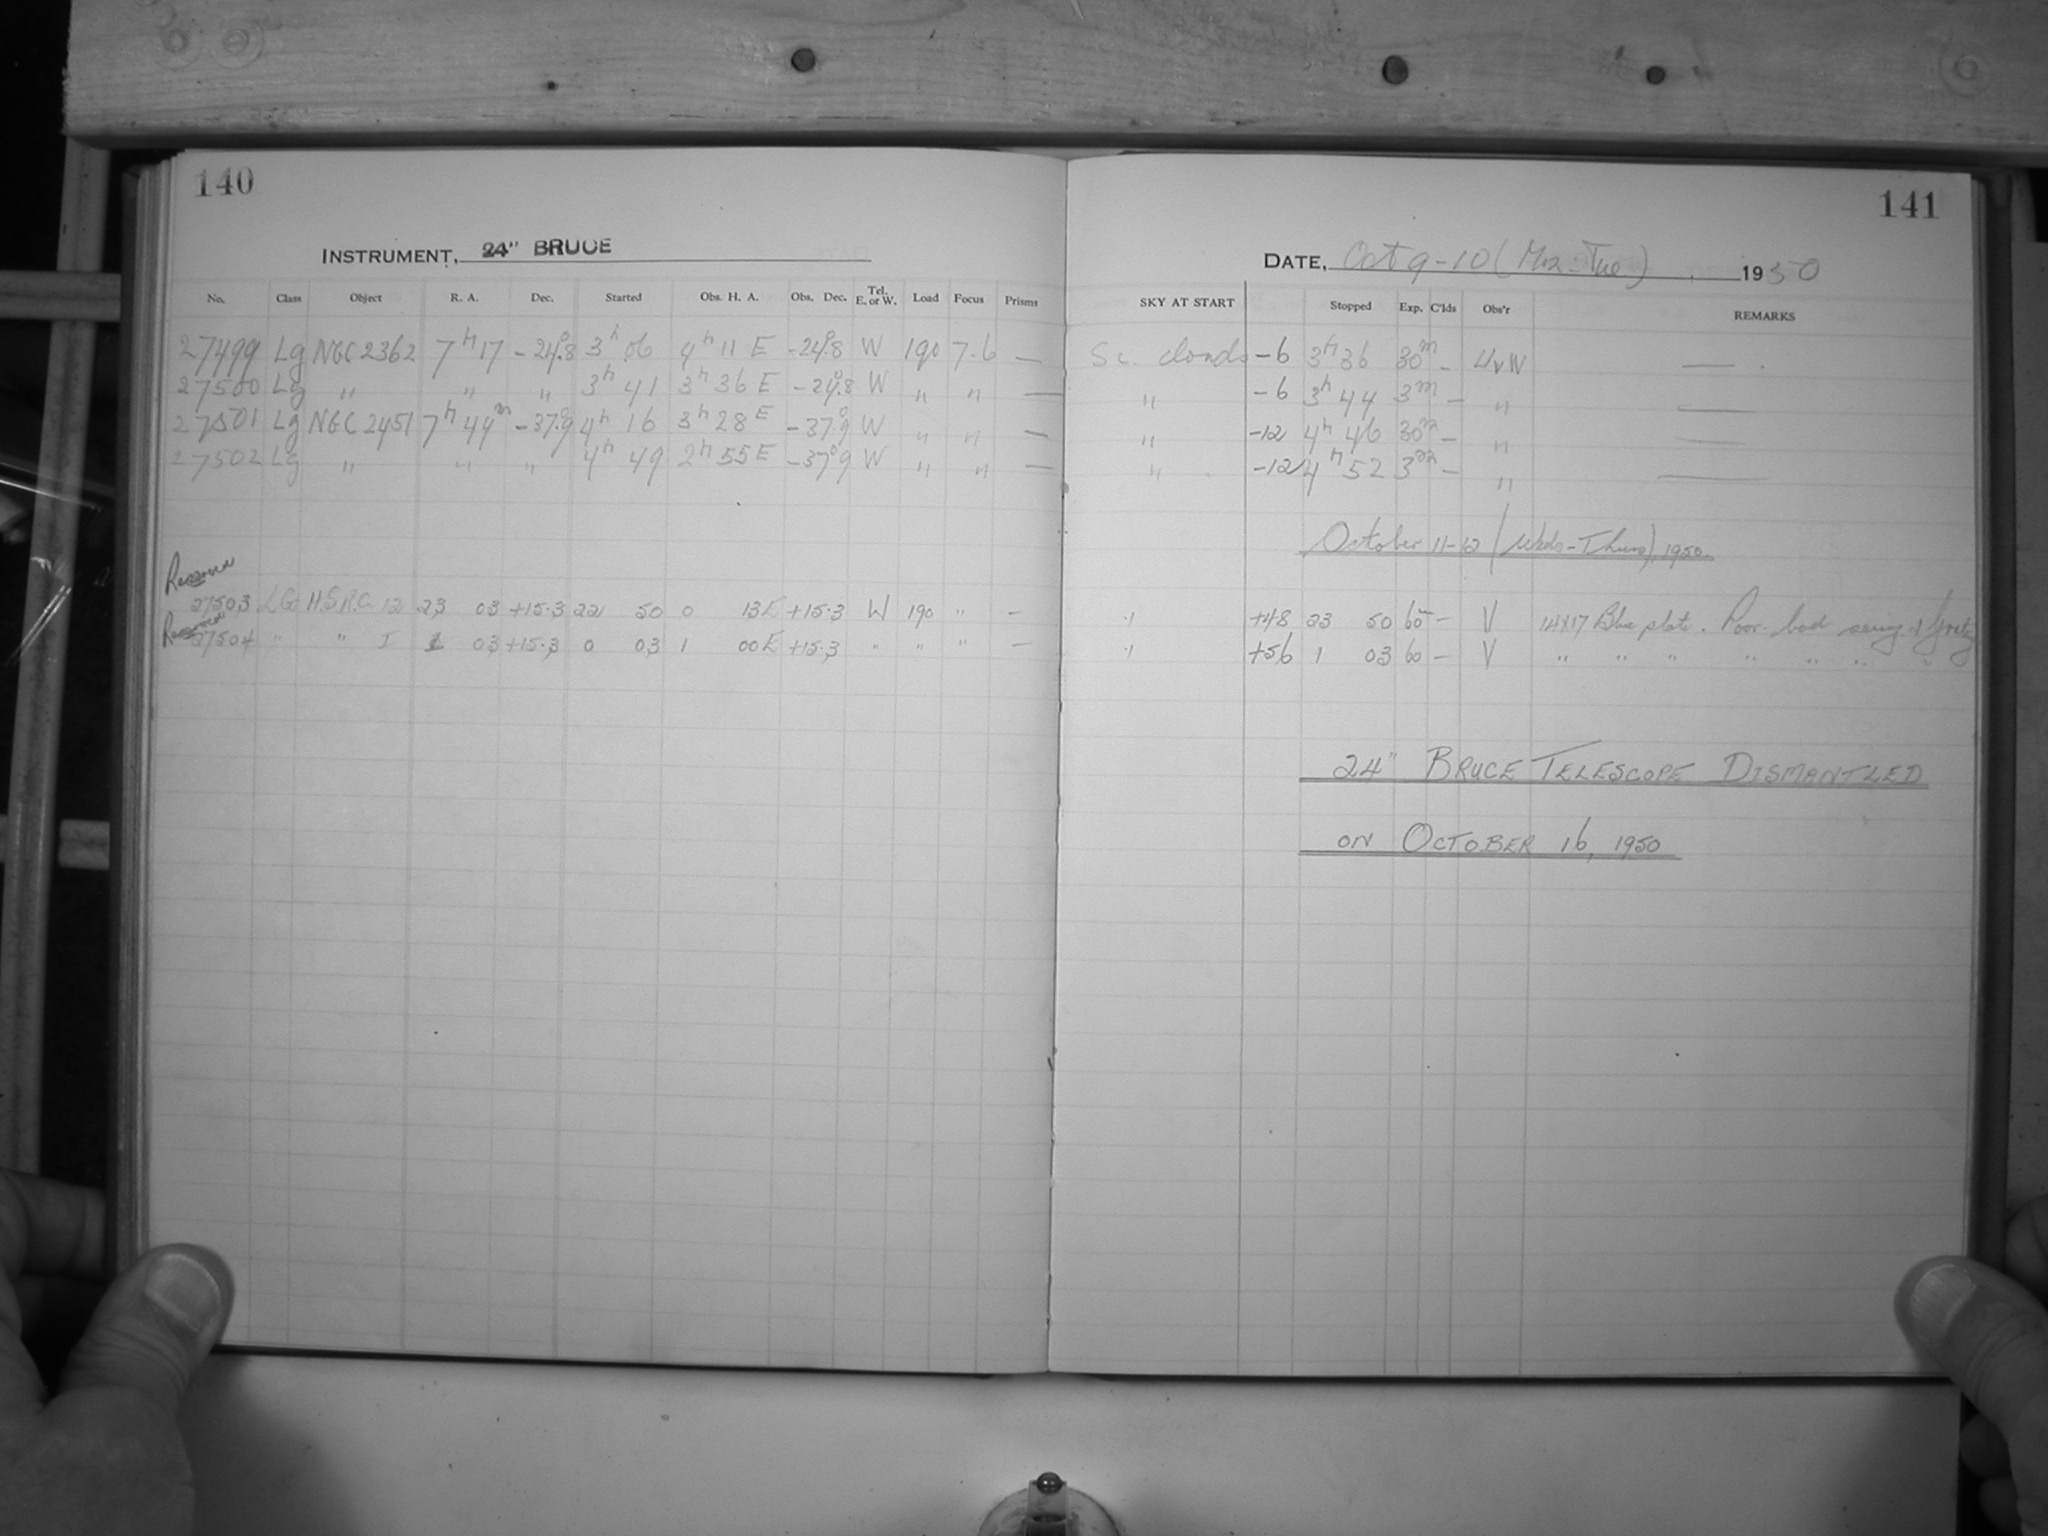 140
INSTRUMENT, 24" BRUCE
No. Class Object R. A. Dec. Started Obs. H. A. Obs. Dec. Tel. E. or W. Load Focus Prisms
27499 Lg NGC 2362 7h 17 -24°.8 3h 06 4h 11 E -24°.8 W 190 7.6 —
27500 Lg " " " 3h 41 3h 36 E -24°.8 W " " —
27501 Lg NGC 2451 7h 44m -37°.9 4h 16 3h 28 E -37°.9 W " " —
27502 Lg " " " 4h 49 2h 55 E -37°.9 W " " —
27503 LG H.S.P.C. 12 23 03 +15.3 22 50 0 13E +15.3 W 190 " —
27504 " " 1 03 +15.3 0 03 1 00E +15.3 " " " —
141
DATE, Oct 9-10 (Mon-Tue) 1950
SKY AT START Stopped Exp. C'lds Obs'r REMARKS
Sc. clouds -6 3h 36 30m - UvW —
" -6 3h 44 3m — " —
" -12 4h 46 30m — " —
" -12 4h 52 3m — " —
October 11-12 (Weds-Thurs), 1950
+48 23 50 60 — V 14x17 Blue plate. Poor. bad seeing
+56 1 03 60 — V " " " " " " "
24" BRUCE TELESCOPE DISMANTLED
ON OCTOBER 16, 1950